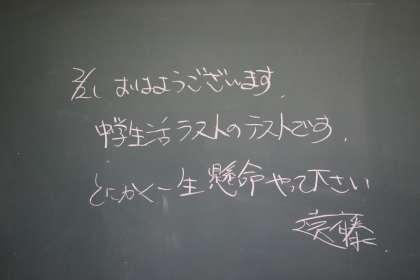 2/21 おはようございます.
中学生活ラストのテストです.
とにかく一生懸命やって下さい
斎藤